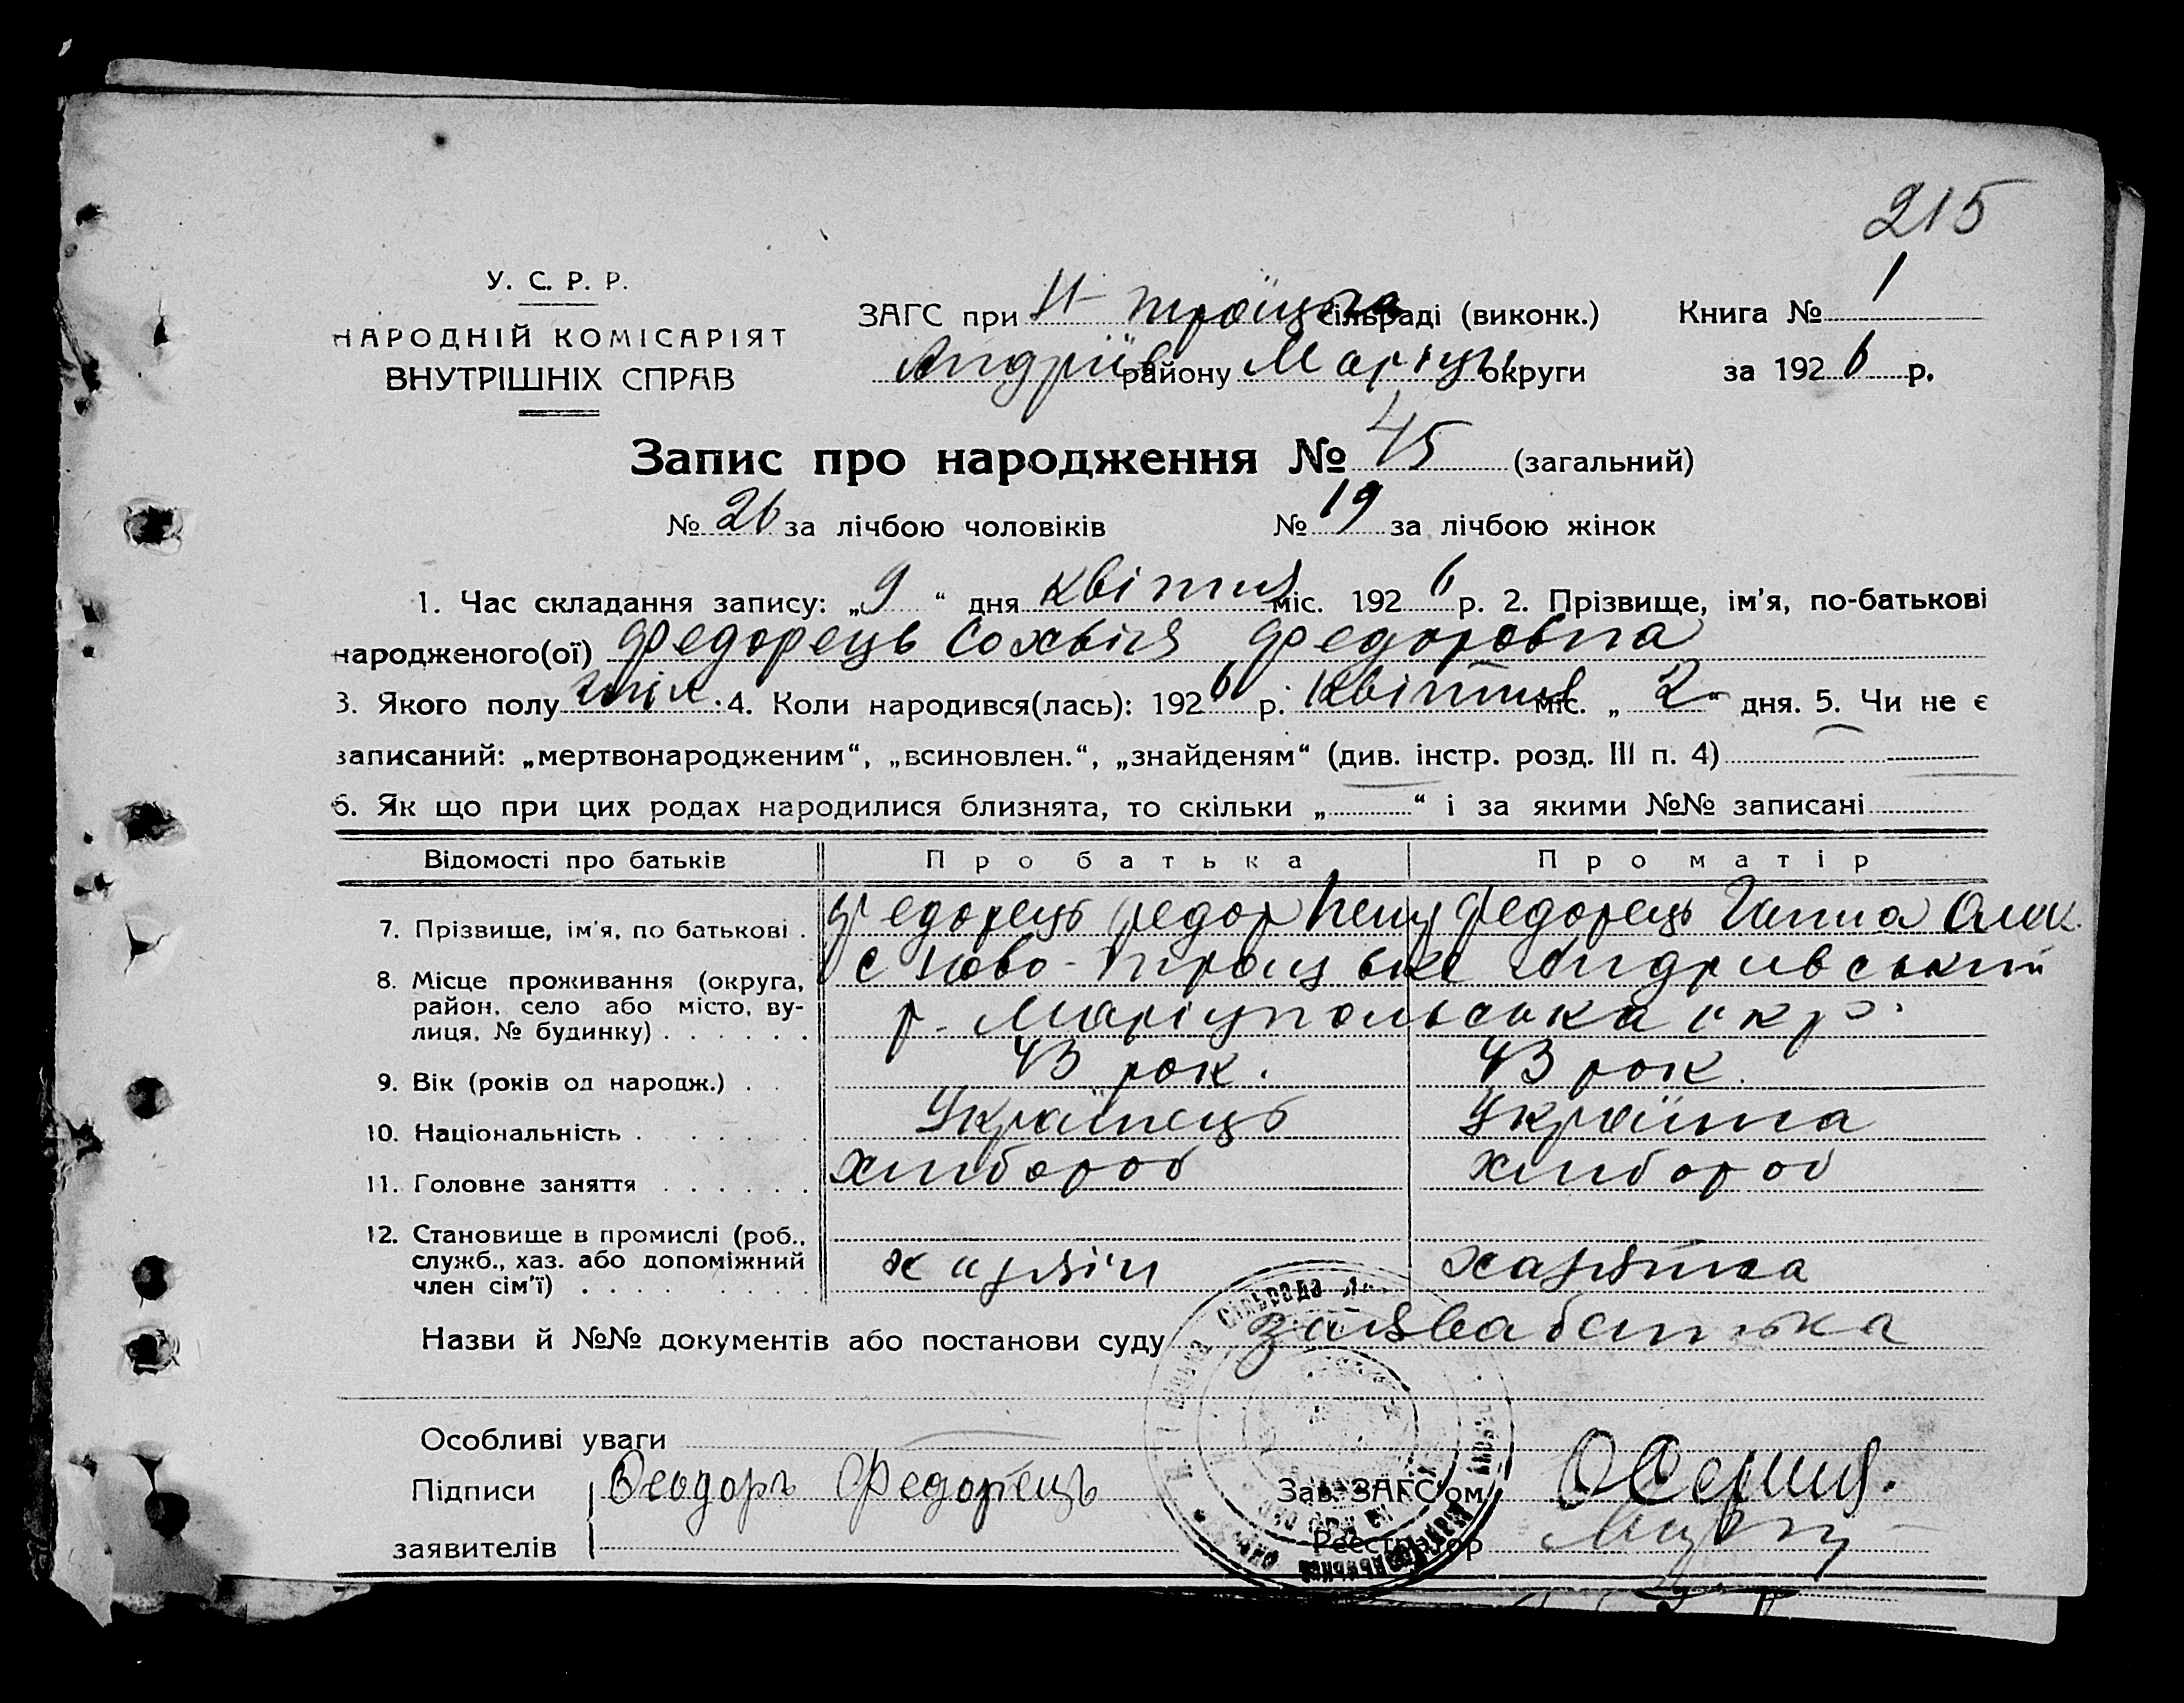 215
У. С. Р. Р.
НАРОДНІЙ КОМІСАРІЯТ
ВНУТРІШНІХ СПРАВ
ЗАГС при Н-троїцька сільраді (виконк.) Книга № 1
Андріїв району Маріуп. округи за 1926 р.
Запис про народження № 45 (загальний)
№ 26 за лічбою чоловіків № 19 за лічбою жінок
1. Час складання запису: „9“ дня квітня міс. 1926 р. 2. Прізвище, ім'я, по-батькові
народженого(ої) Федорець Софія Федоровна
3. Якого полу жін. 4. Коли народився(лась): 1926 р. Квітня міс. „2“ дня. 5. Чи не є
записаний: „мертвонародженим“, „всиновлен.“, „знайденям“ (див. інстр. розд. III п. 4)
6. Як що при цих родах народилися близнята, то скільки „ “ і за якими №№ записані
Відомості про батьків Про батька Про матір
7. Прізвище, ім'я, по батькові . Федорець Федор Федорець Ганна Олек.
8. Місце проживання (округа, район, село або місто, вулиця, № будинку) . . . . . . с Ново-Троицьке Андриівський
р. Маріупольська окр.
9. Вік (років од народж.) . . 43 рок. 43 рок.
10. Національність . . . . . . Українець Українка
11. Головне заняття . . . . . . хлибороб хлибороб
12. Становище в промислі (роб., служб., хаз. або допоміжний член сім'ї) . . . . . . . . хазяін хазяйка
Назви й №№ документів або постанови суду заява батька
Особливі уваги
Підписи Ѳеодоръ Федорець Зав. ЗАГС'ом
заявителів Реєстратор